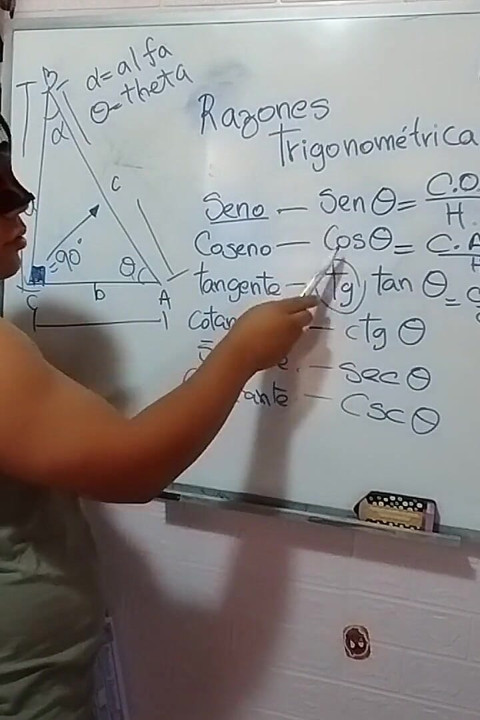 B
α = alfa
θ = theta
α
c
=90°
θ
C
b
A
Razones
Trigonométrica
Seno — Sen θ = C.O / H
Coseno — Cos θ = C.A
tangente — Tg, tan θ =
— ctg θ
— Sec θ
— Csc θ